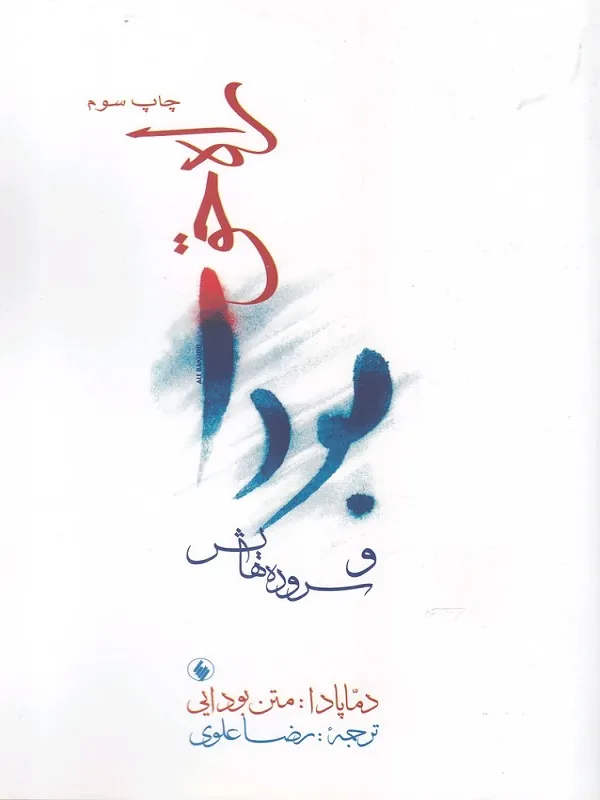 چاپ سوم
راه حق
بودا
و
سروده‌هایش
دمّاپادا: متن بودایی
ترجمهٔ: رضا علوی